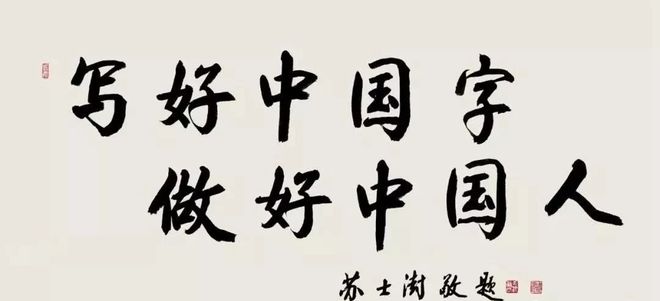 写好中国字
做好中国人
苏士澍敬题